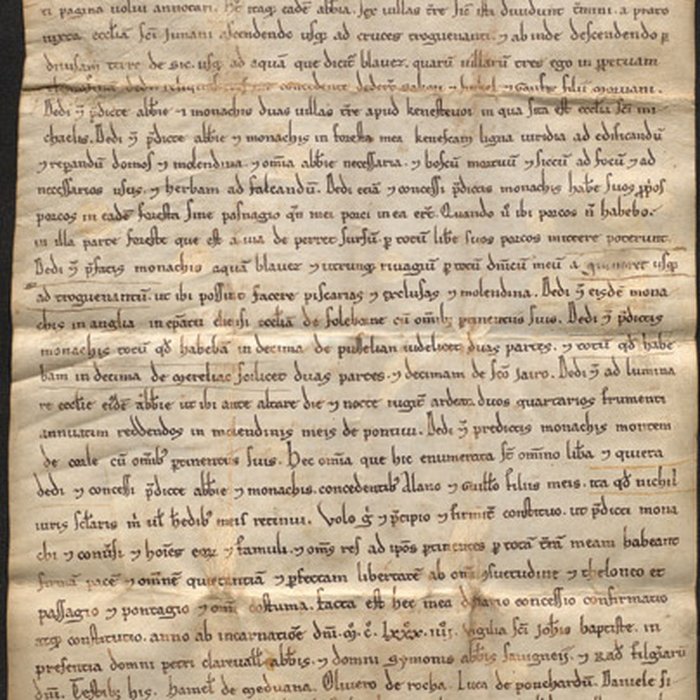 ti pagina volui annotari. Hec itaq; eadē abbia. Sex villas tre sic ista dividunt t̄mini. a prato
iuxta ecclia sc̄i Junani ascendendo usq; ad cruces troguenanti. ⁊ ab inde descendendo p
divisam terre de sic. usq; ad aquā que dicit̄ blavez. quarū villarū tres ego in ppetuam
elemosinā dedi
Dedi ⁊ p̄dicte abbie ⁊ monachis duas villas tre apud kenestevoi in qua sita est ecclia sc̄i mi
chaelis. Dedi ⁊ p̄dicte abbie ⁊ monachis in foresta mea kenescam ligna viridia ad edificandū
⁊ reparandū domos ⁊ molendina. ⁊ om̄ia abbie necessaria. ⁊ boscū mortuū ⁊ siccū ad focū ⁊ ad
necessarios usus. ⁊ herbam ad falcandū. Dedi eciā ⁊ concessi p̄dictis monachis habe suos pp̄os
porcos in eadē foresta sine pasnagio qn̄ mei porci in ea er̄t. Quando ū ibi porcos n̄ habebo.
in illa parte foreste que est a via de perret sursū. p totū libe suos porcos mittere poterunt.
Dedi ⁊ p̄fatis monachis aquā blavez ⁊ utrūq; rivagiū p totū dn̄iciū meū a quinoret usq;
ad troguenantū. ut ibi possint facere piscarias ⁊ exclusas ⁊ molendina. Dedi ⁊ eisdē mona
chis in anglia in ep̄atu ecclia de foleborne cū omib; ptinentiis suis. Dedi ⁊ p̄dictis
monachis totū qd̄ habebā in decima de videlicet duas partes. ⁊ totū qd̄ habe
bam in decima de mereliac scilicet duas partes. ⁊ decimam de sc̄o Jairo. Dedi ⁊ ad lumina
re ecclie eidē abbie ut ibi ante altare die ⁊ nocte iugit̄ ardeat. duos quartarios frumenti
annuatim reddendos in molendinis meis de pontivi. Dedi ⁊ predictis monachis montem
de coale cū om̄ib ptinentiis suis. Hec om̄ia que hic enumerata st̄ om̄ino lib̄a ⁊ quieta
dedi ⁊ concessi p̄dicte abbie ⁊ monachis. concedentib' Alano ⁊ Guill̄o filiis meis. ita qd̄ nichil
iuris sc̄laris m̄ ul' h̄edib' meis retinui. Volo ḡ ⁊ p̄cipio ⁊ firmit̄ constituo. ut p̄dicti mona
chi ⁊ conv̄si ⁊ hoīes eoꝝ ⁊ famuli. ⁊ om̄s res ad ipōs ptinentes p totā t̄rā meam habeant
firmā pacē ⁊ om̄nē quietantiā ⁊ pfectam libertatē ab om̄i suetudine ⁊ theloneo et
passagio ⁊ pontagio ⁊ om̄i costuma. facta est hec mea donatio concessio confirmatio
atq; constitutio. anno ab incarnatiōe dn̄i. M̊. C̊. lxxx. iiij. vigilia sc̄i Joh̄is baptiste. in
presentia domni petri clarevall̄ abb̄is. ⁊ domni symonis abb̄is savigneii. ⁊ Rad̄ filgiarū
dn̄i. Testib; his. Hamel̄ de meduana. Olivero de rocha. Luca de ponchardū. Daniele fi-